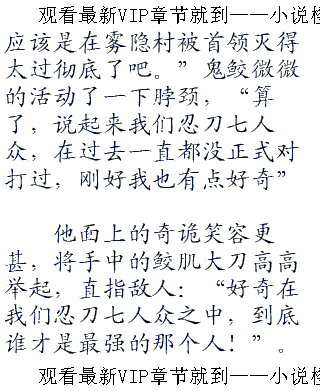 观看最新VIP章节就到——小说检
应该是在雾隐村被首领灭得
太过彻底了吧。”鬼鲛微微
的活动了一下脖颈，“算
了，说起来我们忍刀七人
众，在过去一直都没正式对
打过，刚好我也有点好奇”
他面上的奇诡笑容更
甚，将手中的鲛肌大刀高高
举起，直指敌人：“好奇在
我们忍刀七人众之中，到底
谁才是最强的那个人！”。
观看最新VIP章节就到——小说检